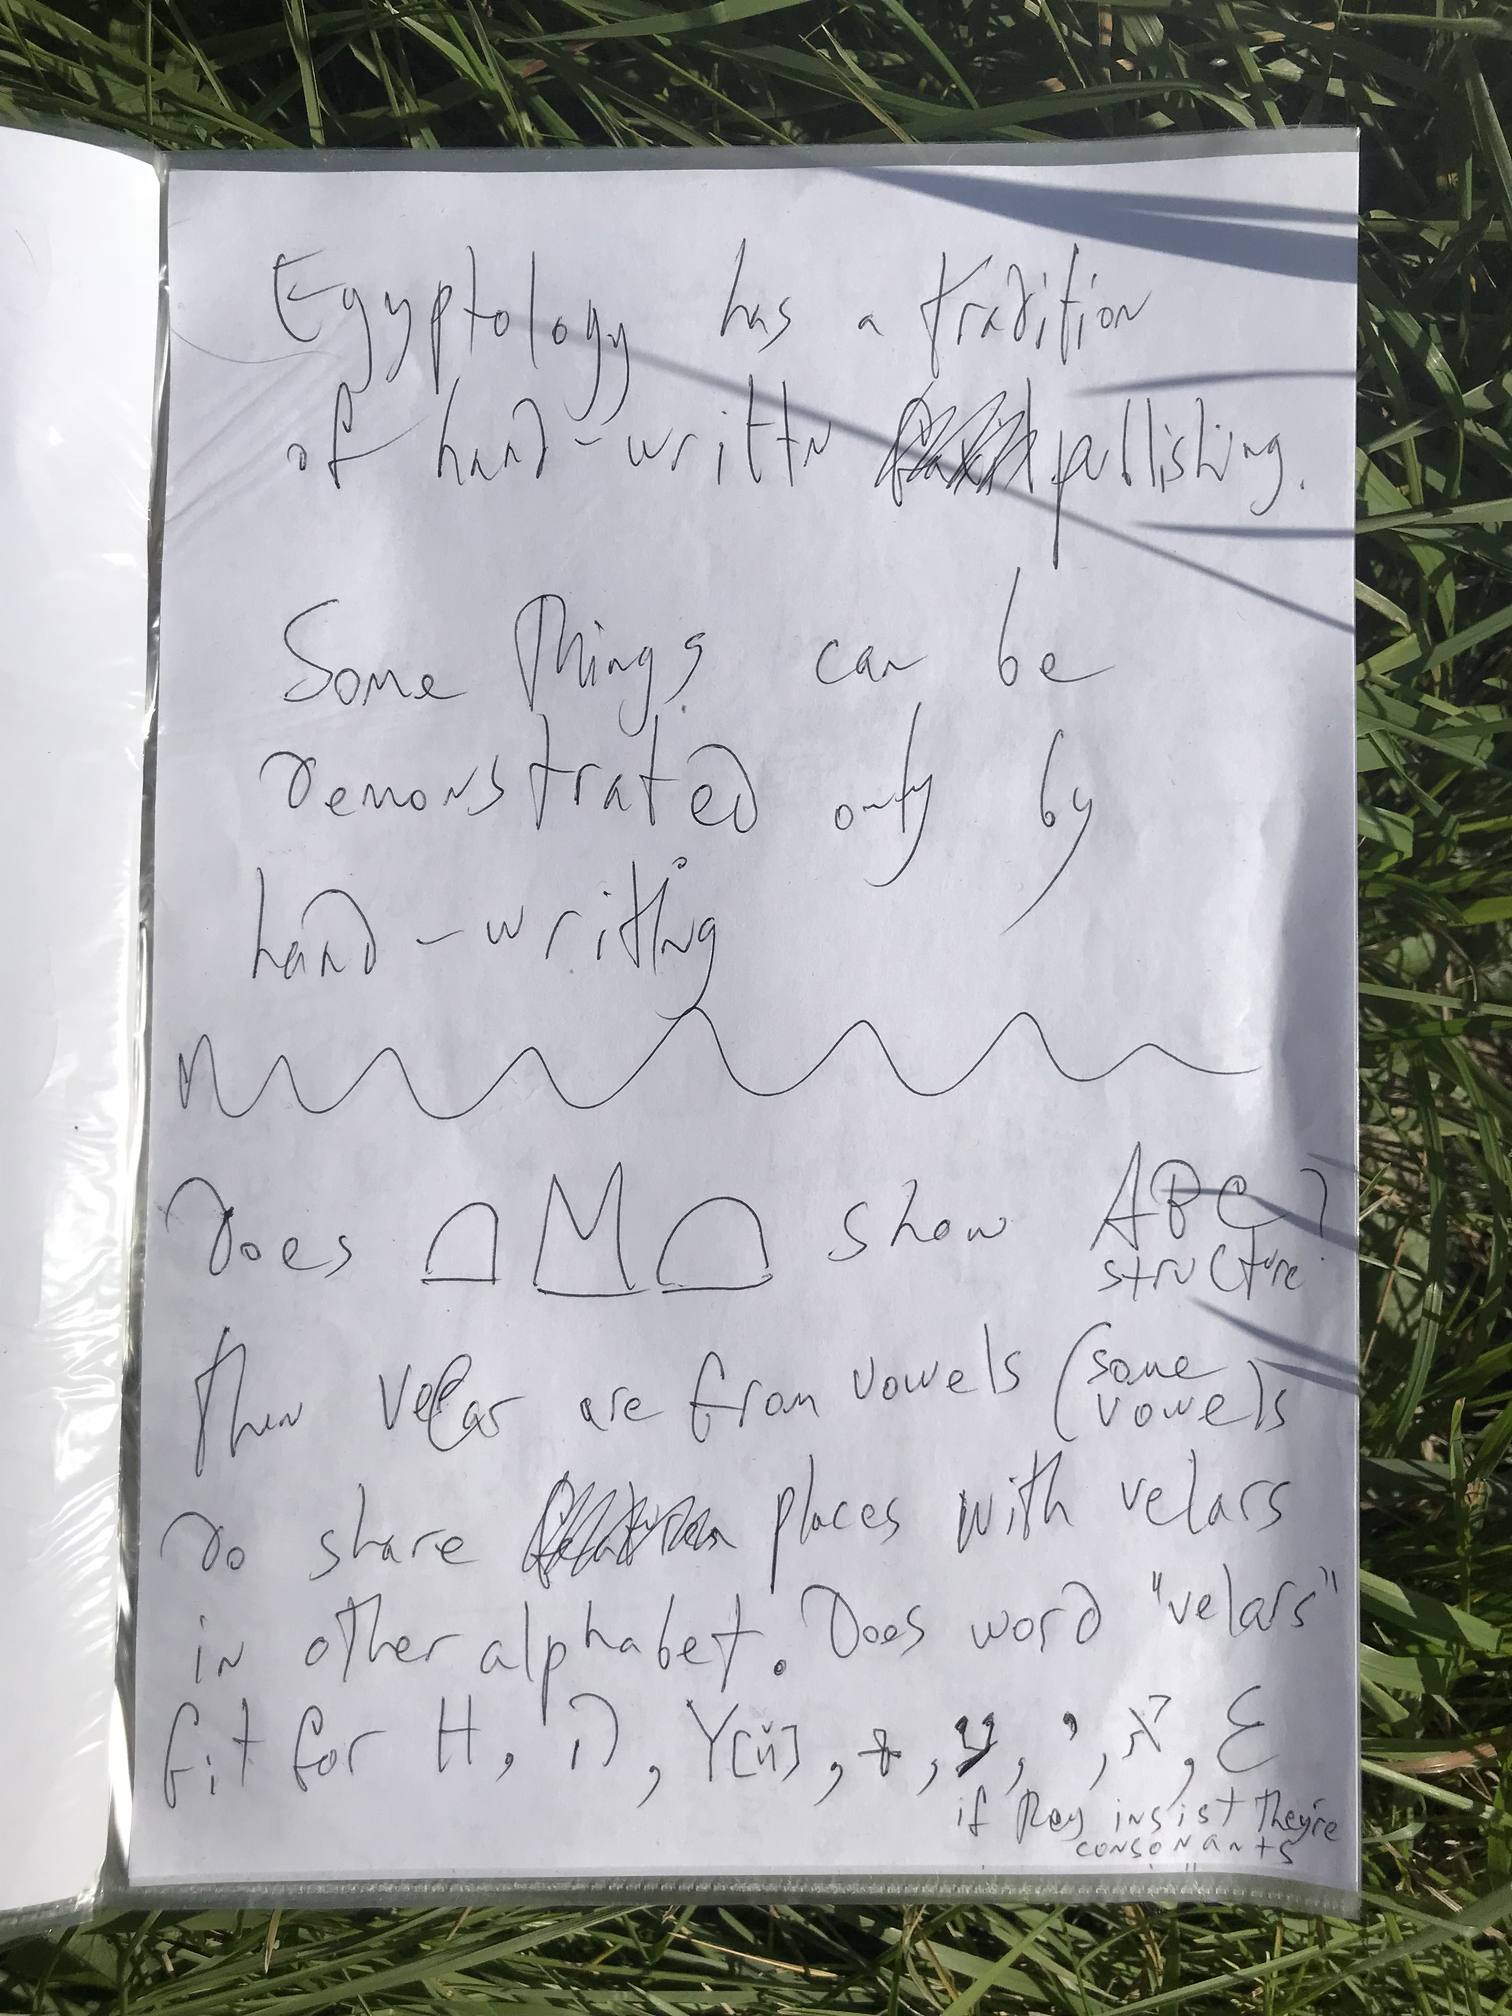 Egyptology has a tradition
of hand-writtn publishing.
Some things can be
demonstrated only by
hand-writing
Does show ABC?
structure
Then velar are from vowels (some
vowels
do share places with velars
in other alphabet. Does word "velars"
fit for H, , Y[й], , , , ,
if they insist they're
consonants